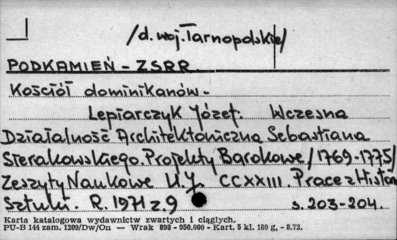 /d. woj. Tarnopolskie/
PODKAMIEŃ - ZSRR
Kościół dominikanów -
Lepiarczyk Józef: Wczesna
Działalność Architektoniczna Sebastiana
Sierakowskiego. Projekty Barokowe /1769-1775/
Zeszyty Naukowe U.J. CCXXIII. Prace z Histor.
Sztuki. R. 1971 z. 9 s. 203-204.
Karta katalogowa wydawnictw zwartych i ciągłych.
PU-B 144 zam. 1209/Dw/On — Wrak 898 - 950.000 - Kart. 5 kl. 180 g, - 8.72.